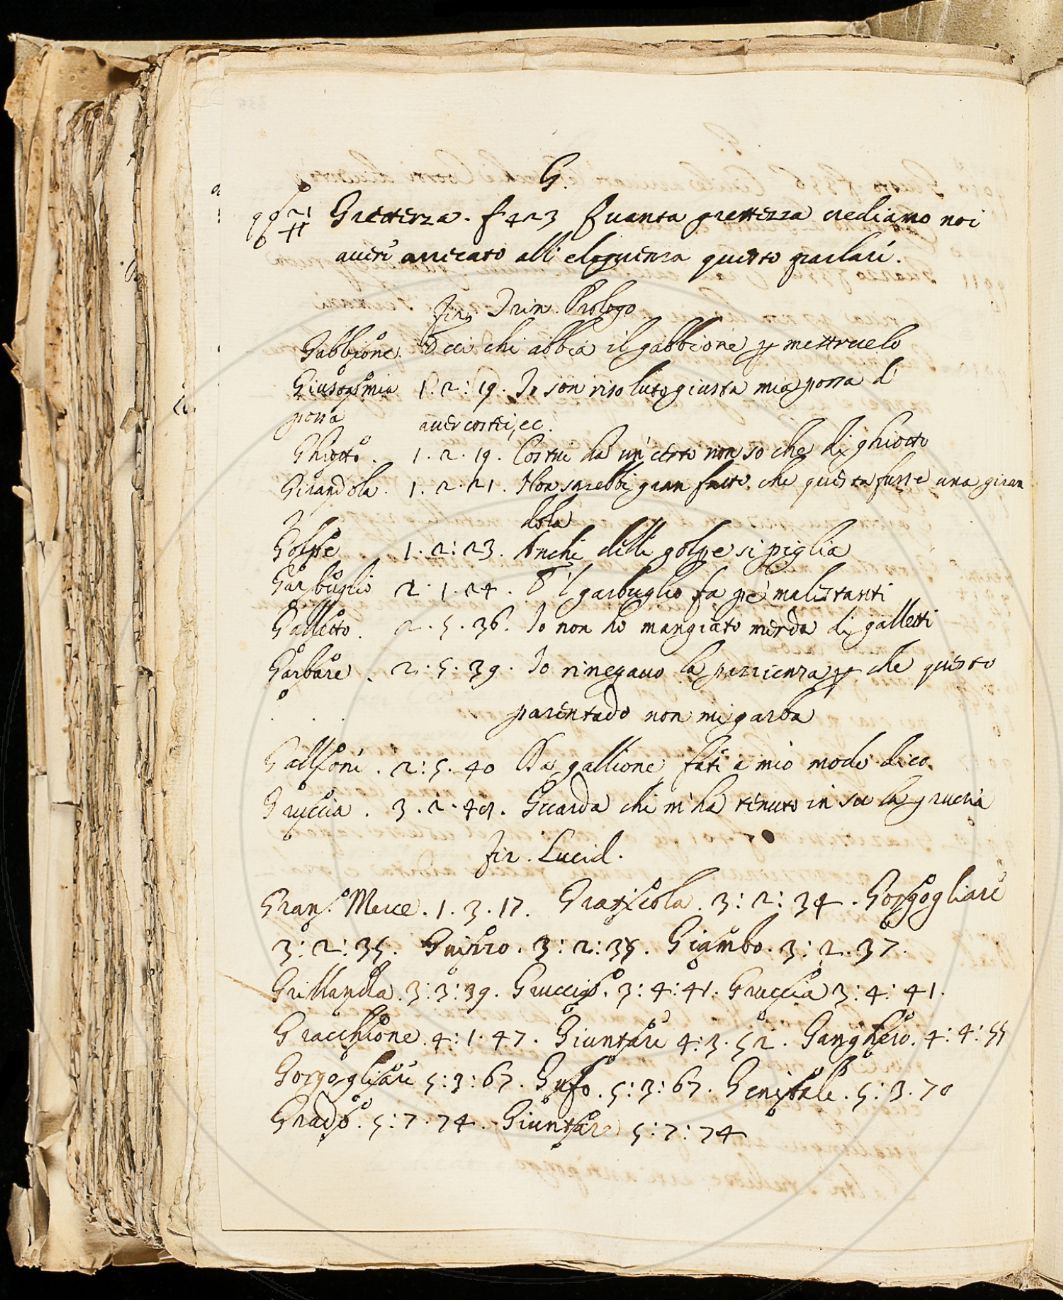 G.
Grettezza. f 423 Quanta grettezza crediamo noi
avere arrecato all' eloquenza questo parlare.
Fir. Trin. Prologo
Gabbione. Ecci chi abbia il gabbione p mettervelo
Giusta mia 1. 2: 19. Io son risoluto giusta mia possa d
possa aver costei, ec.
Ghiotto. 1. 2. 19. Costui ha un certo non so che di ghiotto
Girandola. 1. 2. 21. Non sarebbe gran fatto, che questa fusse una giran
dola
Golpe 1: 2: 23. Anche delle golpe si piglia
Garbuglio 2. 1. 24. E 'l garbuglio fa pe' malestanti
Galletto. 2. 5. 36. Io non ho mangiato merda di galletti
Garbare. 2: 5: 39. Io rinegavo la pazzienza p che questo
parentado non mi garba
Gallioni. 2: 5. 40 gallione, fate a mio modo dico.
Gruccia. 3. 2. 49. Guarda chi m'ha tenuto in su la gruccia
Fir. Lucid.
Gran. Merce. 1. 3. 17. Graticola. 3: 2: 34. Gorgogliare
3: 2: 35. 3: 2: 35. Giambo. 3: 2. 37.
Grillanda. 3: 3: 39. 3: 4: 41. Gruccia 3: 4: 41.
Gracchione. 4: 1. 47. Giuntare 4: 3. 52. Ganghero. 4: 4: 55
Gorgogliare 5: 3: 67. Gufo. 5: 3: 67. Genitale. 5: 3. 70
Grado. 5: 7. 74. Giuntare 5: 7: 74